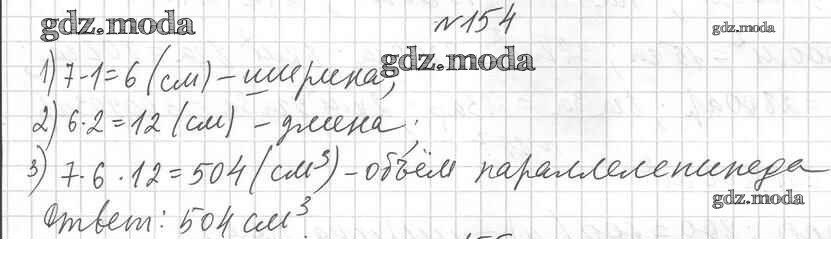 gdz.moda
№154
gdz.moda
1) 7-1=6 (см) - ширина,
gdz.moda
2) 6·2=12 (см) - длина,
3) 7·6·12=504 (см³) - объём параллелепипеда
gdz.moda
Ответ: 504 см³.